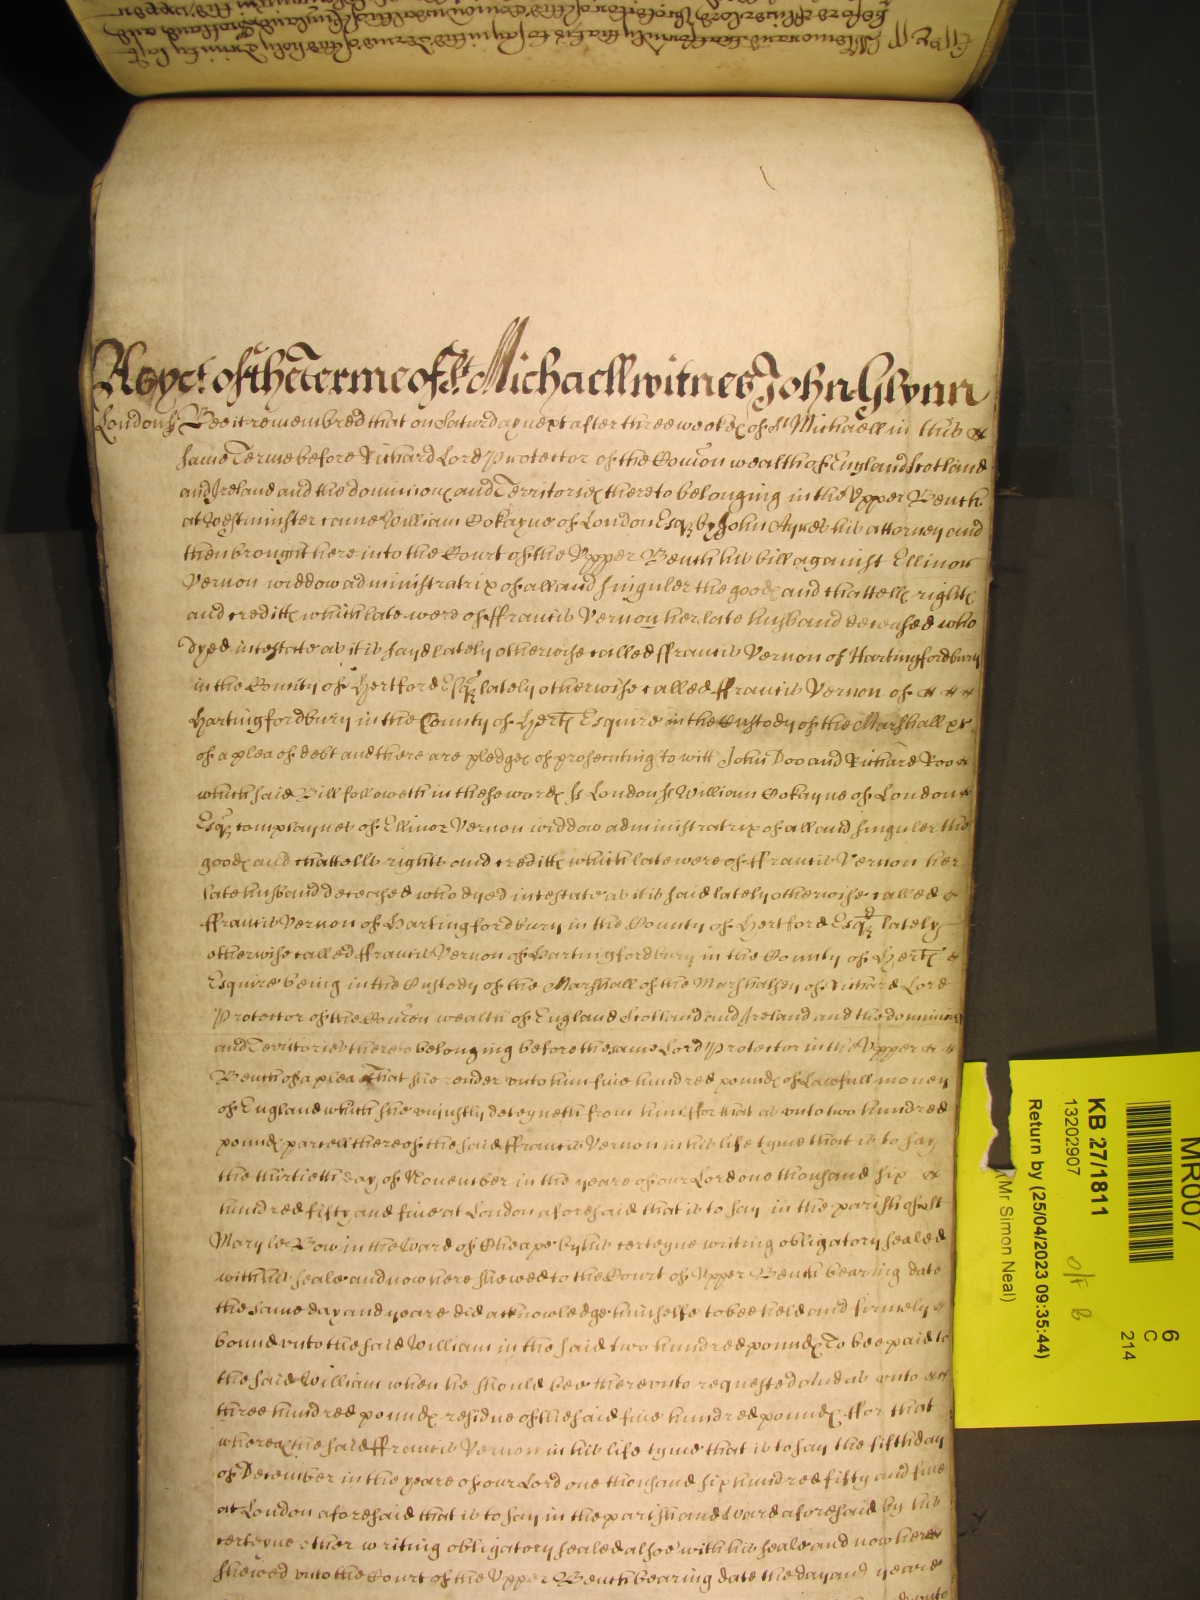 Memorand that formerly that is to say in the terme of the holy Trinity last
before Oliver Lord Protector of the
As yet of the Terme of St Michaell witnes John Glynn
London ss Bee it remembred that on Saturday next after three weekes of St Michaell in this
same Terme before Richard Lord Protector of the Comon wealth of England Scotland
and Ireland and the dominions and Territories thereto belonging in the Vpper Bench
at Westminster came William Cokayne of London Esqr by John Ayres his attorney and
then brought here into the Court of the Vpper Bench his bill against Ellinor
Vernon widdow administratrix of all and singuler the goodes and chattells rightes
and creditts which late were of ffrancis Vernon her late husband deceased who
dyed intestate as it is sayd lately otherwise called ffrancis Vernon of Hartingfordbury
in the County of Hertford Esqr lately otherwise called ffrancis Vernon of
Hartingfordbury in the County of Hertf Esquire in the Custody of the Marshall &c
of a plea of debt and there are pledges of prosecuting to witt John Doo and Richard Roo
which said Bill followeth in these wordes ss London ss William Cokayne of London
Esqr complaynes of Ellinor Vernon widdow administratrix of all and singuler the
goodes and chattells rights and creditts which late were of ffrancis Vernon her
late husband deceased who dyed intestate as it is said lately otherwise called
ffrancis Vernon of Hartingfordbury in the County of Hertford Esqr lately
otherwise called ffrancis Vernon of Hartingfordbury in the County of Hertf
Esquire being in the Custody of the Marshall of the Marshalsey of Richard Lord
Protector of the Comon wealth of England Scotland and Ireland and the dominions
and Territories thereto belonging before the same Lord Protector in the Vpper
Bench of a plea that she render vnto him five hundred poundes of lawfull money
of England which she vniustly deteyneth from him ffor that as vnto two hundred
poundes parcell thereof the said ffrancis Vernon in his life tyme that is to say
the thirtieth day of November in the yeare of our Lord one thousand six
hundred fifty and five at London aforesaid that is to say in the parish of St
Mary le Bow in the Ward of Cheape by his certeyne writing obligatory sealed
with his seale and now here shewed to the Court of Vpper Bench bearing date
the same day and yeare did acknowledge himselfe to bee held and firmely
bound vnto the said William in the said two hundred poundes To bee paid to
the said William when he should bee therevnto requested And as vnto
three hundred poundes residue of the said five hundred poundes ffor that
whereas the said ffrancis Vernon in his life tyme that is to say the fifth day
of December in the yeare of our Lord one thousand six hundred fifty and five
at London aforesaid that is to say in the parish and Ward aforesaid by his
certeyne other writing obligatory sealed alsoe with his seale and now here
shewed vnto the Court of the Vpper Bench bearing date the day and yeare
MR007
6
C
214
KB 27/1811
13202907
O/F B
Return by (25/04/2023 09:35:44)
(Mr Simon Neal)